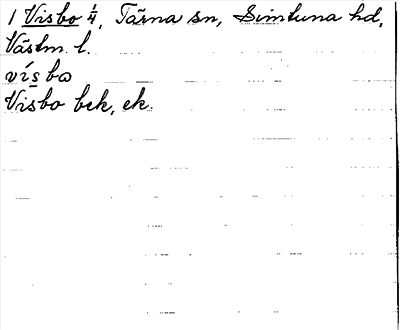 1 Visbo 1/4, Tärna sn, Simtuna hd,
Västm. l.
vísbω
Visbo bek, ek.